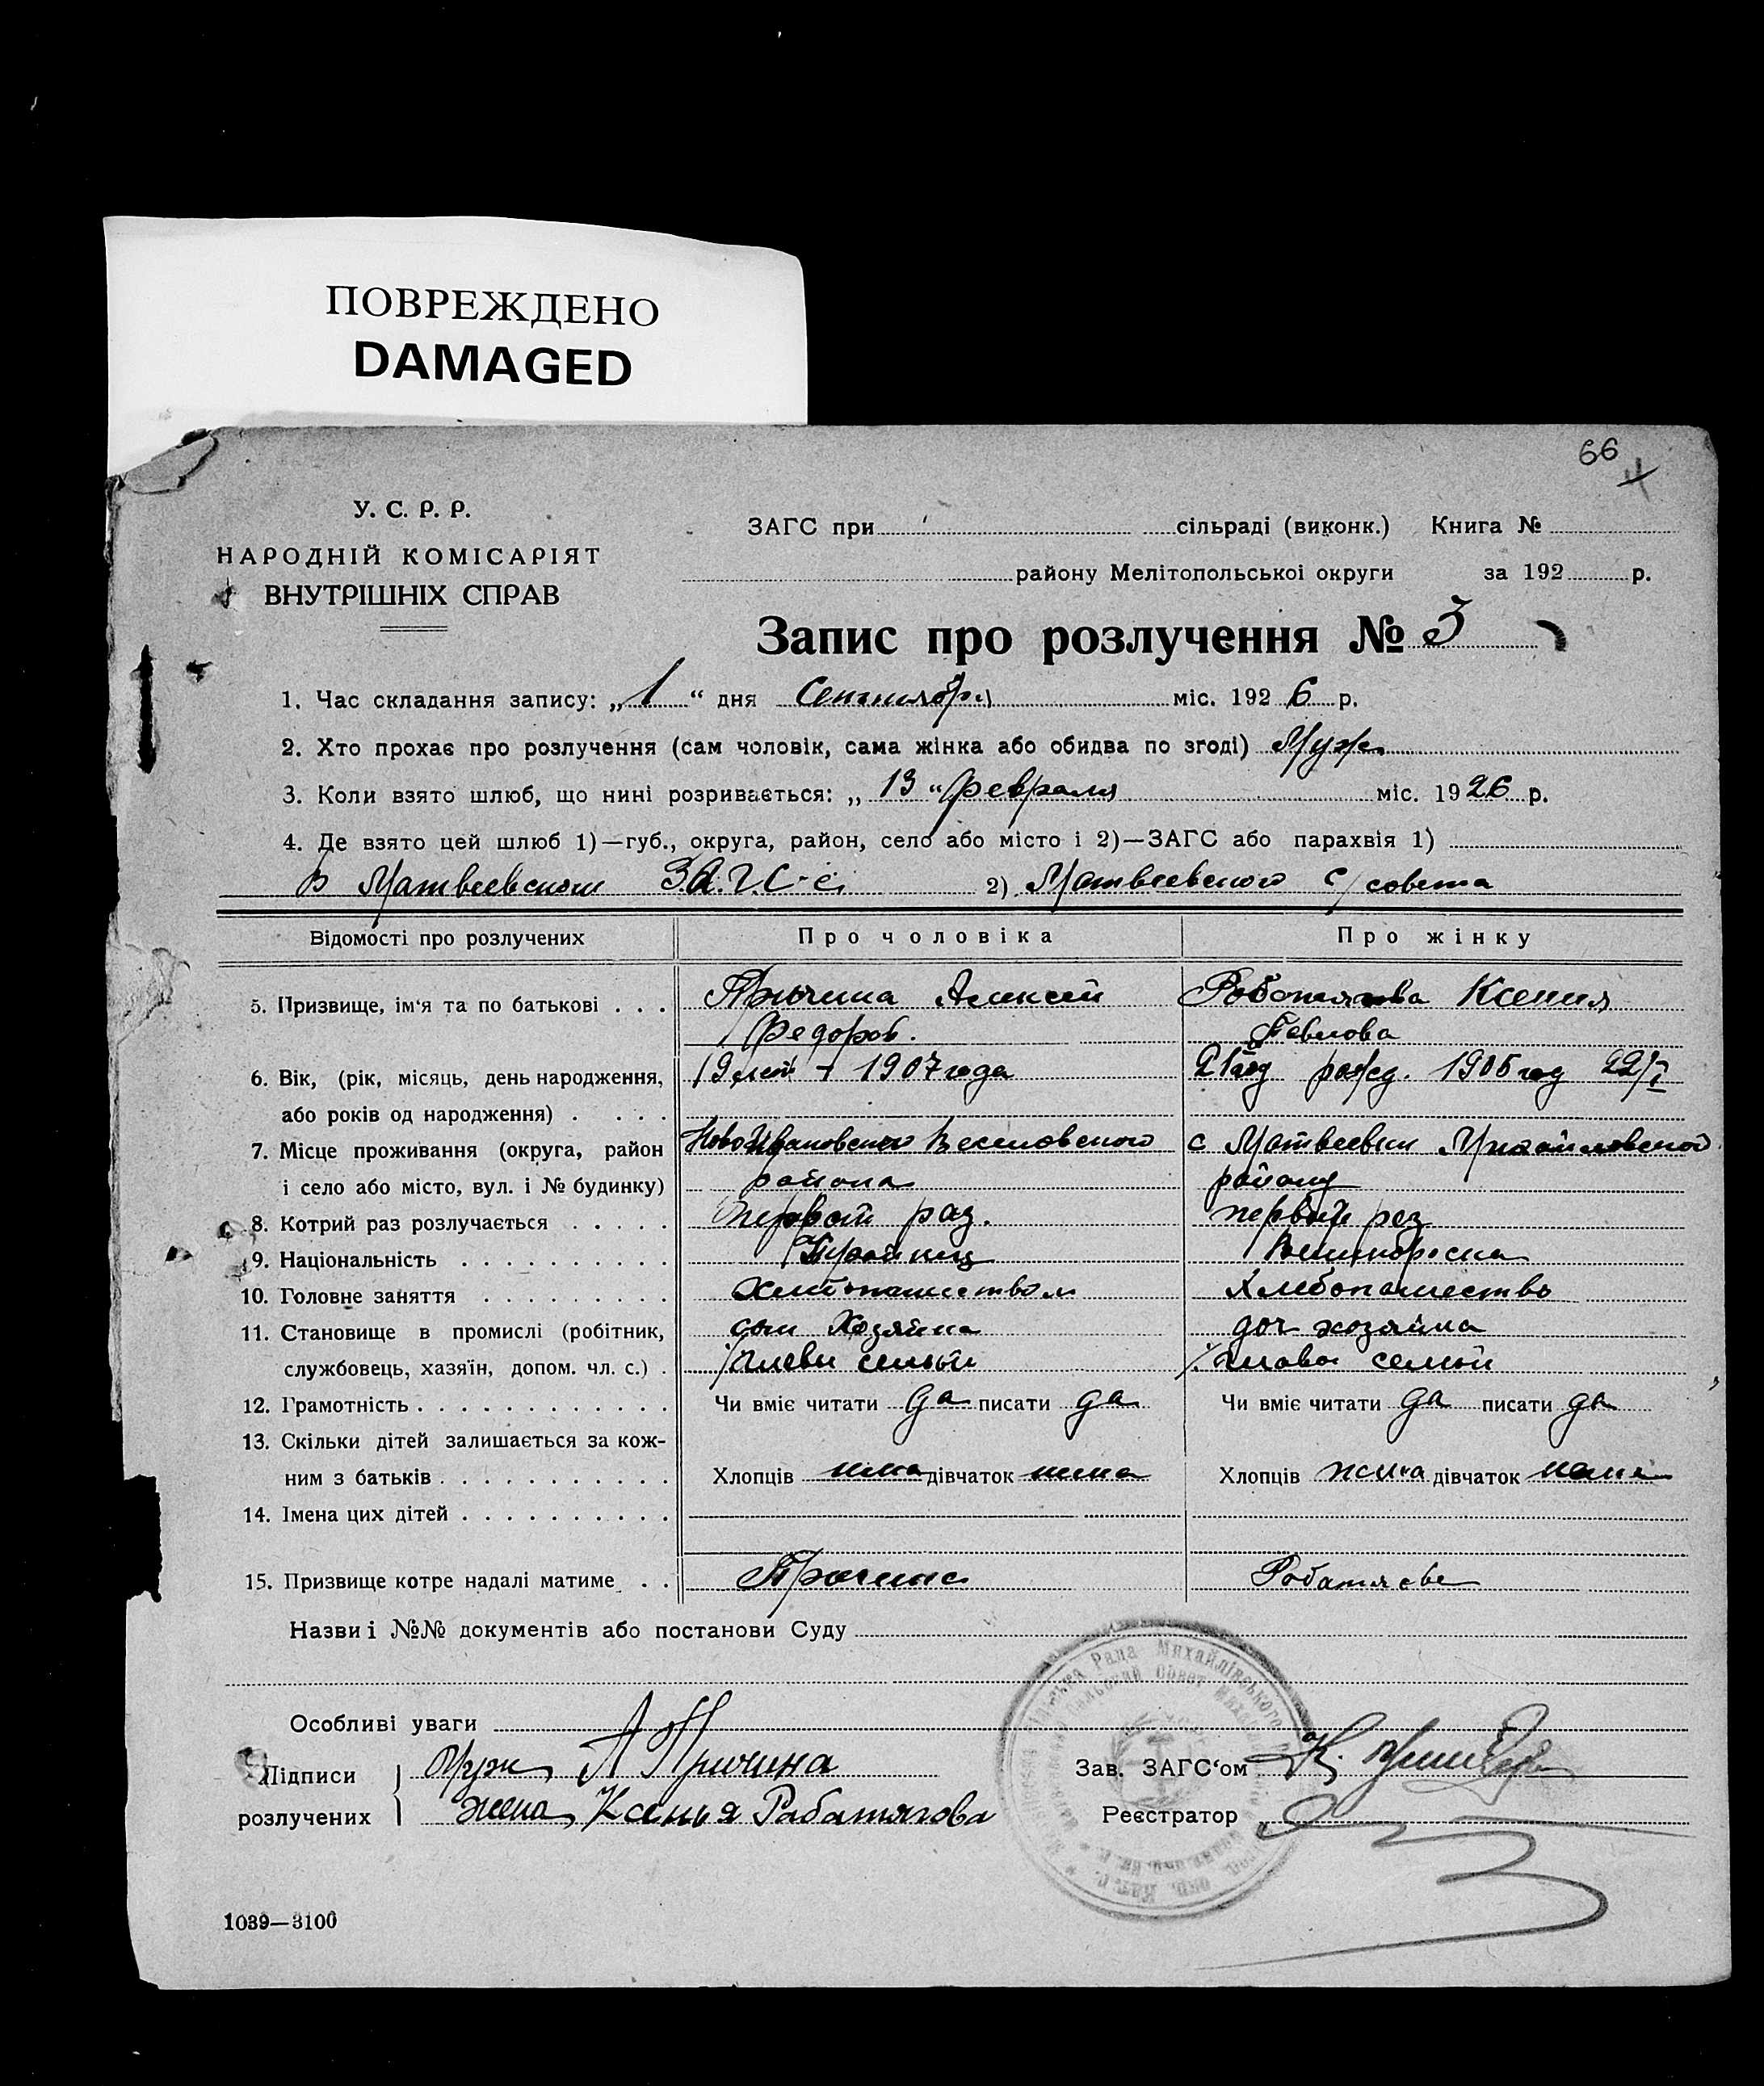 ПОВРЕЖДЕНО
DAMAGED
66
У. С. Р. Р.
НАРОДНІЙ КОМІСАРІЯТ
ВНУТРІШНІХ СПРАВ
ЗАГС при сільраді (виконк.) Книга №
району Мелітопольськоі округи за 192 р.
Запис про розлучення № 3
1. Час складання запису: „ 1 “ дня Сентября міс. 192 6 р.
2. Хто прохає про розлучення (сам чоловік, сама жінка або обидва по згоді) Муж
3. Коли взято шлюб, що нині розривається: „ 13 “ февраля міс. 19 26 р.
4. Де взято цей шлюб 1)—губ., округа, район, село або місто і 2)—ЗАГС або парахвія 1)
в Матвеевском З.А.Г.С-е 2) Матвеевского с/совета
Відомості про розлучених Про чоловіка Про жінку
5. Призвище, ім‘я та по батькові . . . Причина Алексей Роботягова Ксения
Федоров. Павлова
6. Вік, (рік, місяць, день народження, 19 лет 1907 года 21 год рожд. 1905 год 22/I
або років од народження) . . . .
7. Місце проживання (округа, район Ново Ивановского Веселовского с Матвеевки Михайловского
і село або місто, вул. і № будинку) района району
8. Котрий раз розлучається . . . . . первый раз. первый раз
9. Національність . . . . . . . . . . Украинец Великороска
10. Головне заняття . . . . . . . . . хлебопашеством хлебопашество
11. Становище в промислі (робітник, сын Хозяина доч хозяина
службовець, хазяїн, допом. чл. с.) . глави семьи глава семьи
12. Грамотність . . . . . . . . . . . . Чи вміє читати да писати да Чи вміє читати да писати да
13. Скільки дітей залишається за кож-
ним з батьків . . . . . . . . . . . Хлопців нема дівчаток нема Хлопців нема дівчаток нема
14. Імена цих дітей . . . . . . . . . .
15. Призвище котре надалі матиме . . Причина Робатягова
Назви і №№ документів або постанови Суду
Особливі уваги
Підписи муж А Причина Зав. ЗАГС‘ом К.
розлучених жена Ксенья Рабатягова Реєстратор
Рада Михайлівського
1039—3100